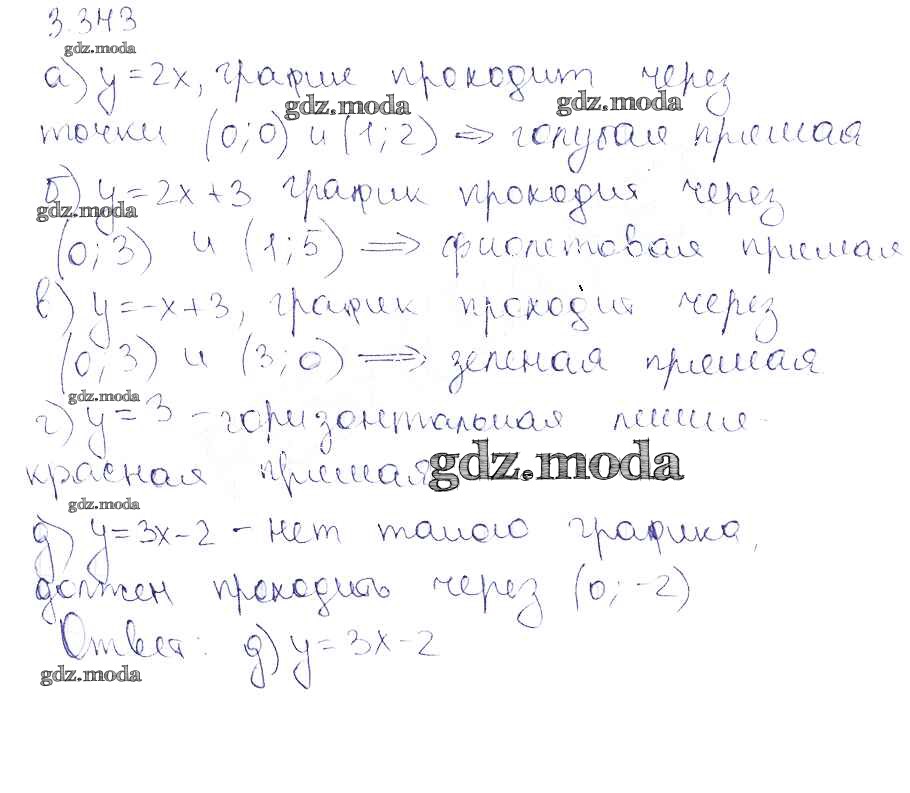 3.343
gdz.moda
а) y=2x, график проходит через
gdz.moda gdz.moda
точки (0;0) и (1;2) => голубая прямая
б) y=2x+3 график проходия через
gdz.moda
(0;3) и (1;5) => фиолетовая прямая
в) y=-x+3, график проходит через
(0;3) и (3;0) => зеленая прямая
gdz.moda
г) y=3 - горизонтальная линия -
красная прямая
gdz.moda
gdz.moda
д) y=3x-2 - нет такого графика,
должен проходить через (0;-2)
Ответ: д) y=3x-2
gdz.moda